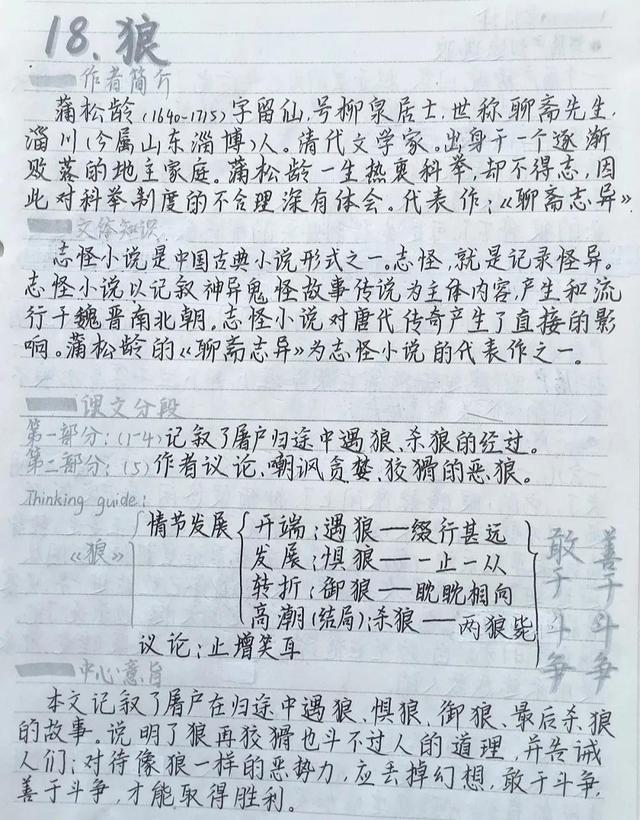 18、狼
作者简介
蒲松龄(1640-1715)字留仙,号柳泉居士,世称聊斋先生,
淄川(今属山东淄博)人。清代文学家。出身于一个逐渐
败落的地主家庭。蒲松龄一生热衷科举,却不得志,因
此对科举制度的不合理深有体会。代表作:《聊斋志异》
文体知识
志怪小说是中国古典小说形式之一。志怪,就是记录怪异。
志怪小说以记叙神异鬼怪故事传说为主体内容,产生和流
行于魏晋南北朝。志怪小说对唐代传奇产生了直接的影
响。蒲松龄的《聊斋志异》为志怪小说的代表作之一。
课文分段
第一部分:(1-4)记叙了屠户归途中遇狼、杀狼的经过。
第二部分:(5)作者议论、嘲讽贪婪、狡猾的恶狼。
Thinking guide:
《狼》
情节发展
开端:遇狼——缀行甚远
发展:惧狼——一止一从
转折:御狼——眈眈相向
高潮(结局):杀狼——两狼毙
敢于斗争
善于斗争
议论:止增笑耳
中心意旨
本文记叙了屠户在归途中遇狼、惧狼、御狼、最后杀狼
的故事。说明了狼再狡猾也斗不过人的道理,并告诫
人们:对待像狼一样的恶势力,应丢掉幻想,敢于斗争,
善于斗争,才能取得胜利。